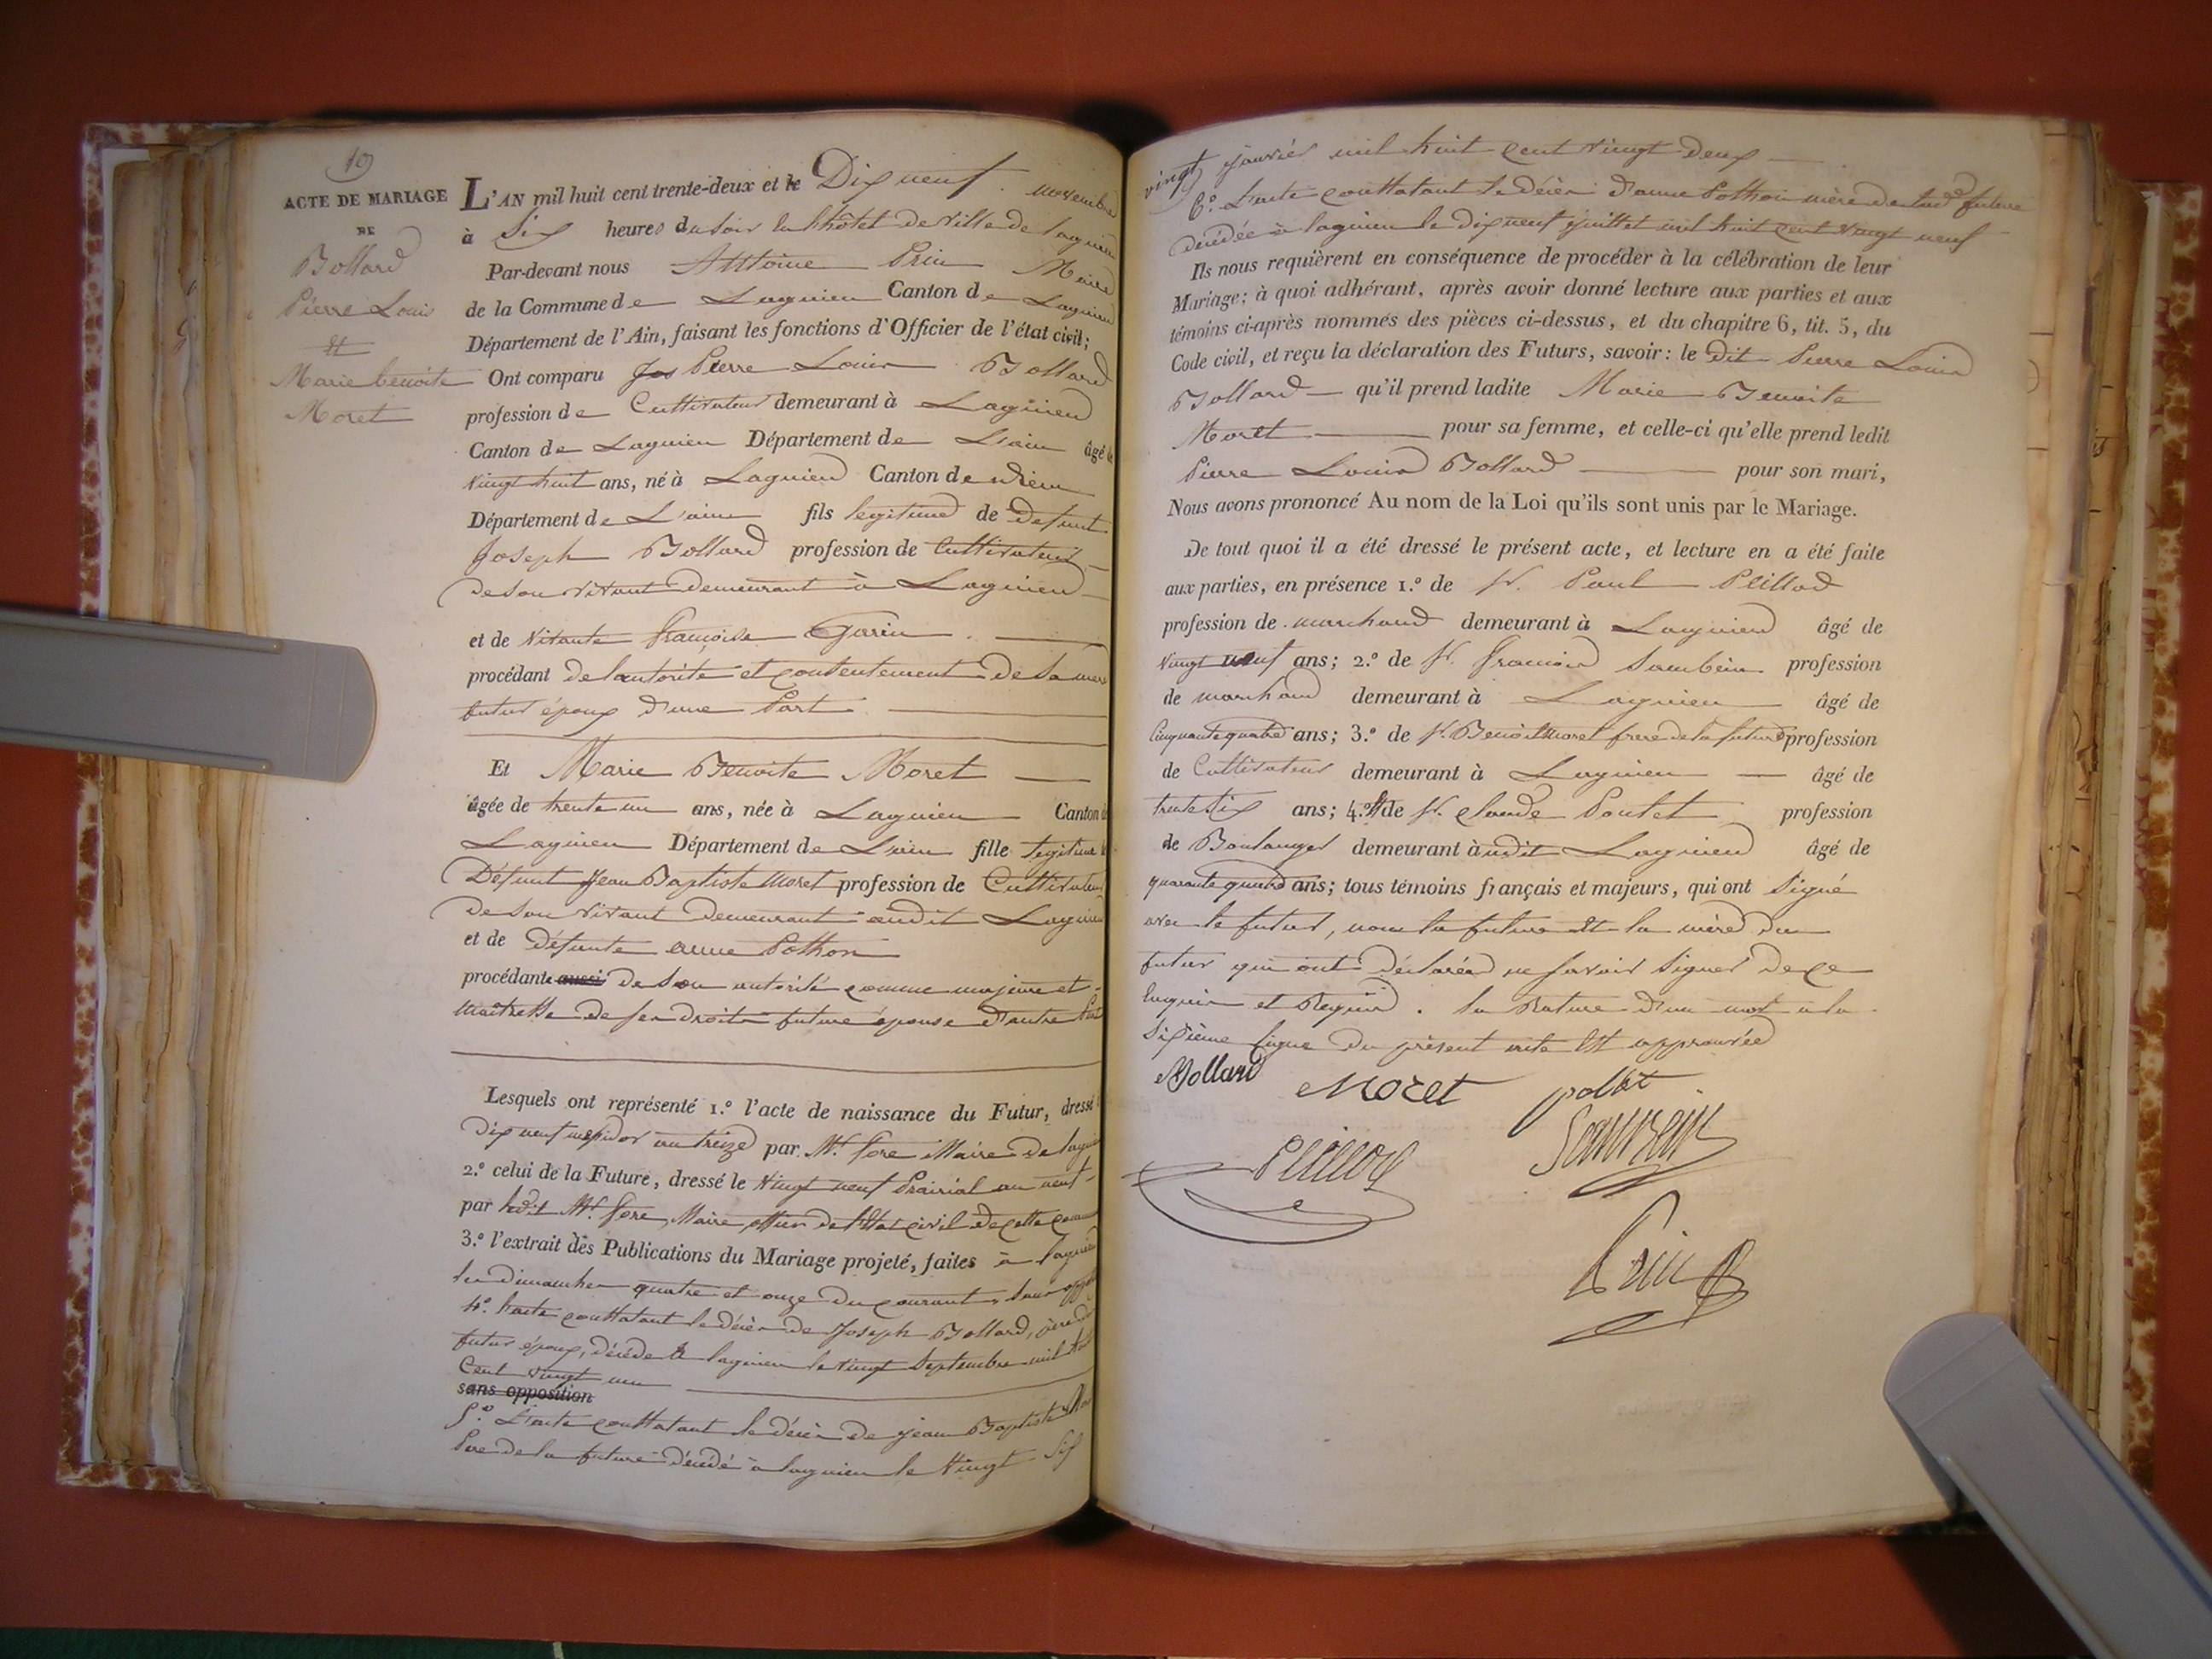 10
ACTE DE MARIAGE
DE
Bollard
Pierre Louis
et
Marie benoite
Moret
L'AN mil huit cent trente-deux et le Dix neuf novembre
à Six heures du soir en l'hôtel de ville de lagnieu
Par-devant nous Antoine Prin Maire
de la Commune de Lagnieu Canton de Lagnieu
Département de l'Ain, faisant les fonctions d'Officier de l'état civil;
Ont comparu Jos Pierre Louis Bollard
profession de Cultivateur demeurant à Lagnieu
Canton de Lagnieu Département de L'ain âgé de
vingt huit ans, né à Lagnieu Canton de
Département de L'ain fils legitime de defunt
Joseph Bollard profession de Cultivateur
de son vivant demeurant à Lagnieu
et de vivante françoise Garin
procédant de l'autorité et consentement de sa mere
futur époux d'une Part
Et Marie Benoite Moret
âgée de trente un ans, née à Lagnieu Canton de
Lagnieu Département de L'ain fille legitime de
Défunt Jean Baptiste Moret profession de Cultivateur
de son vivant demeurant audit Lagnieu
et de Défunte anne Pothon
procédante aussi de son autorité comme majeure et
maitresse de ses droits future épouse d'autre Part
Lesquels ont représenté 1.º l'acte de naissance du Futur, dressé
dix neuf messidor an treize par Mr. fore Maire de lagnieu
2.º celui de la Future, dressé le vingt neuf Prairial an neuf
par ledit Mr. fore, Maire officier de l'Etat civil de cette
3.º l'extrait des Publications du Mariage projeté, faites à lagnieu
les dimanches quatre et onze du courant, sans
4.º l'acte constatant le décès de Joseph Bollard, père du
futur époux, décédé à lagnieu le vingt Septembre mil huit
Cent vingt un
sans opposition
5.º L'acte constatant le décès de jean Baptiste
Pere de la future décédé à lagnieu le vingt Six
vingt janvier mil huit cent vingt deux
6.º L'acte constatant le décès d'anne Pothon mère de lad. future
décédée à lagnieu le dix neuf juillet mil huit cent vingt neuf
Ils nous requièrent en conséquence de procéder à la célébration de leur
Mariage; à quoi adhérant, après avoir donné lecture aux parties et aux
témoins ci-après nommés des pièces ci-dessus, et du chapitre 6, tit. 5, du
Code civil, et reçu la déclaration des Futurs, savoir: le dit Pierre Louis
Bollard qu'il prend ladite Marie Benoite
Moret pour sa femme, et celle-ci qu'elle prend ledit
Pierre Louis Bollard pour son mari,
Nous avons prononcé Au nom de la Loi qu'ils sont unis par le Mariage.
De tout quoi il a été dressé le présent acte, et lecture en a été faite
aux parties, en présence 1.º de Sr. Paul Peillod
profession de marchand demeurant à Lagnieu âgé de
vingt neuf ans; 2.º de Sr. françois Sambein profession
de marchand demeurant à Lagnieu âgé de
Cinquante quatre ans; 3.º de Sr. Benoit Moret frere de la future profession
de Cultivateur demeurant à Lagnieu âgé de
trente Six ans; 4.º de Sr. claude Poulet profession
de Boulanger demeurant à udit Lagnieu âgé de
quarante quatre ans; tous témoins français et majeurs, qui ont Signé
avec le futur, non la future et la mère du
futur qui ont déclarés ne savoir signer de ce
Enquis et Requis. la Rature d'un mot à la
Sixième ligne du présent acte est approuvée
Bollard
Moret
Peillod
Prin